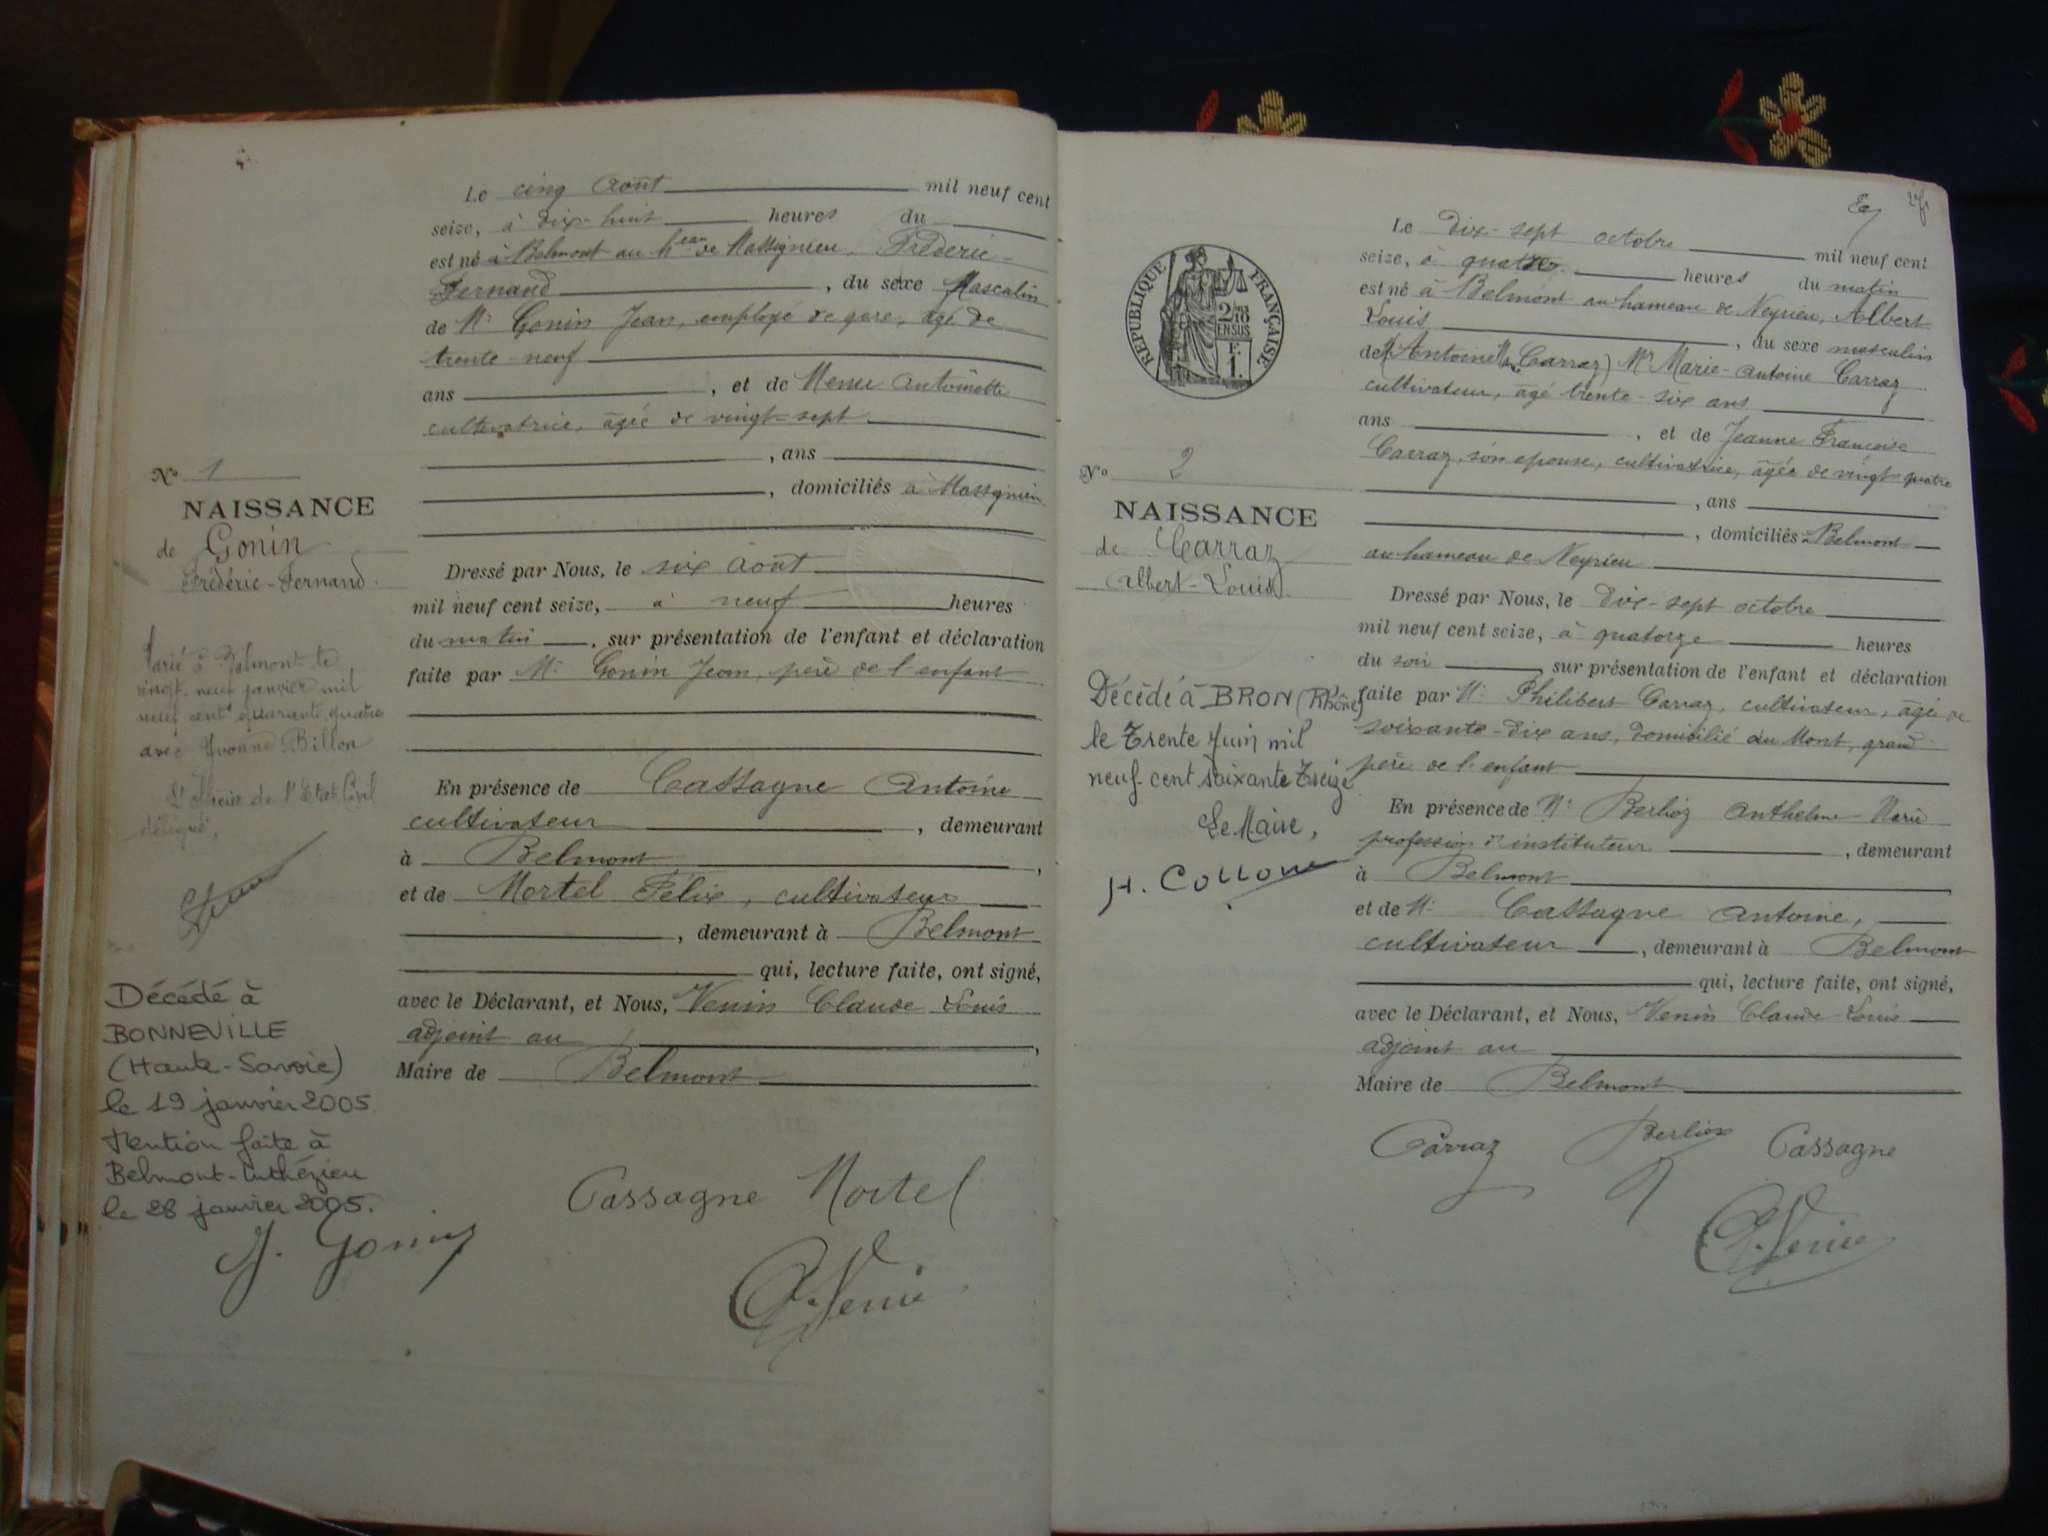 Le cinq Août mil neuf cent
seize, à dix-huit heures du
est né à Belmont au h.eau de Massignieu, Fréderic-
Fernand, du sexe Masculin
de Mr Gonin Jean, employé de gare, âgé de
trente-neuf
ans, et de Menu Antoinette
cultivatrice, âgée de vingt-sept
, ans
, domiciliés à Massignieu
No 1
NAISSANCE
de Gonin
Frédéric-Fernand.
Dressé par Nous, le six Août
mil neuf cent seize, à neuf heures
du matin, sur présentation de l'enfant et déclaration
faite par Mr Gonin Jean, père de l'enfant
Marié à Belmont le
vingt-neuf janvier mil
neuf cent quarante quatre
avec Yvonne Billon
L'Officier de l'Etat Civil
délégué,
En présence de Cassagne Antoine
cultivateur, demeurant
à Belmont,
et de Mortel Félix, cultivateur
, demeurant à Belmont
qui, lecture faite, ont signé,
avec le Déclarant, et Nous, Venin Claude Louis
adjoint au,
Maire de Belmont
Décédé à
BONNEVILLE
(Haute-Savoie)
le 19 janvier 2005.
Mention faite à
Belmont-Luthézieu
le 28 janvier 2005.
Cassagne Mortel
J. Gonin
C. Venin
Le Dix-sept octobre mil neuf cent
seize, à quatre heures du matin
est né à Belmont au hameau de Neyrieu, Albert
Louis, du sexe masculin
de (Antoine Carraz) Mr Marie-Antoine Carraz
cultivateur, âgé trente-six ans
ans, et de Jeanne Francoise
Carraz, son epouse, cultivatrice, âgée de vingt-quatre
, ans
, domiciliés Belmont
au hameau de Neyrieu
RÉPUBLIQUE FRANÇAISE
2/10
EN SUS
1 F.
No 2
NAISSANCE
de Carraz
Albert-Louis
Dressé par Nous, le Dix-sept octobre
mil neuf cent seize, à quatorze heures
du soir, sur présentation de l'enfant et déclaration
faite par Mr Philibert Carraz, cultivateur, âgé de
soixante-dix ans, domicilié au Mont, grand
père de l'enfant
Décédé à BRON (Rhône)
le Trente Juin mil
neuf-cent Soixante Treize
Le Maire,
H. Collon
En présence de Mr Berlioz Anthelme-Marie
profession d'instituteur, demeurant
à Belmont
et de Mr Cassagne Antoine,
cultivateur, demeurant à Belmont
qui, lecture faite, ont signé,
avec le Déclarant, et Nous, Venin Claude-Louis
adjoint au
Maire de Belmont
Carraz Berlioz Cassagne
C. Venin